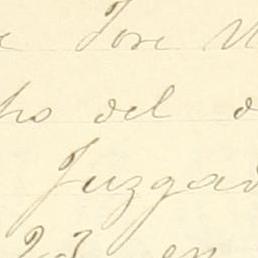 e Jose M
ho del d
Juzgad
23 en